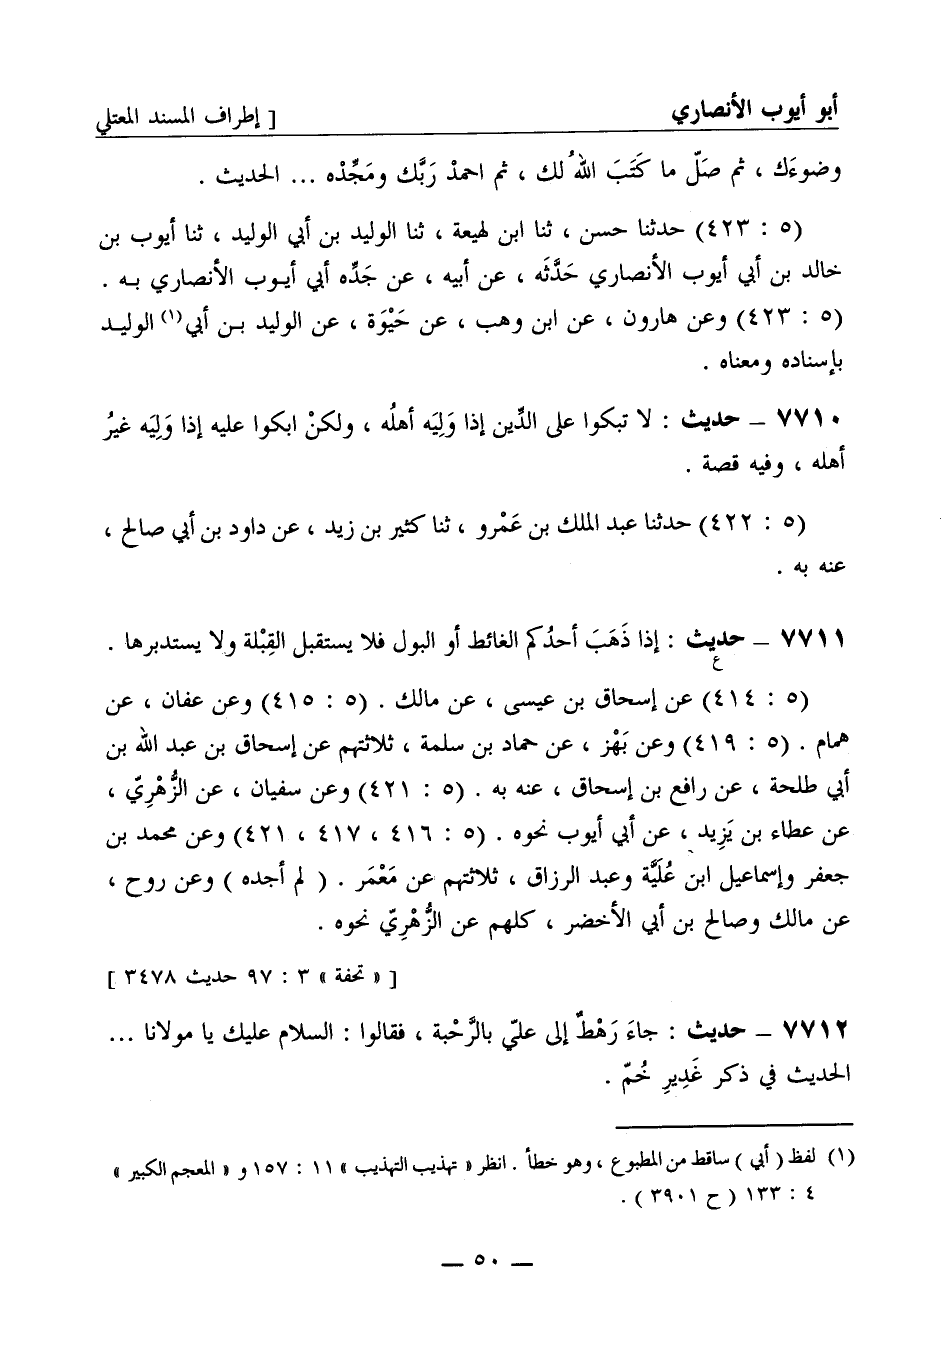 أبو أيوب الأنصاري [ إطراف المسند المعتلي
وضوءَك ، ثم صَلّ ما كَتَبَ اللهُ لك ، ثم احمدْ رَبَّك ومَجِّدْه ... الحديث .
(٥ : ٤٢٣) حدثنا حسن ، ثنا ابن لهيعة ، ثنا الوليد بن أبي الوليد ، ثنا أيوب بن
خالد بن أبي أيوب الأنصاري حَدَّثَه ، عن أبيه ، عن جَدِّه أبي أيـوب الأنصاري بـه .
(٥ : ٤٢٣) وعن هارون ، عن ابن وهب ، عن حَيْوَة ، عن الوليد بـن أبي(١) الوليـد
بإسناده ومعناه .
٧٧١٠ – حديث : لا تبكوا على الدِّين إذا وَلِيَه أهلُه ، ولكنْ ابكوا عليه إذا وَلِيَه غيرُ
أهله ، وفيه قصة .
(٥ : ٤٢٢) حدثنا عبد الملك بن عَمْرو ، ثنا كثير بن زيد ، عن داود بن أبي صالح ،
عنه به .
٧٧١١ – حديث : إذا ذَهَبَ أحدُكم الغائط أو البول فلا يستقبل القِبْلة ولا يستدبرها .
ع
(٥ : ٤١٤) عن إسحاق بن عيسى ، عن مالك . (٥ : ٤١٥) وعن عفان ، عن
همام . (٥ : ٤١٩) وعن بَهْز ، عن حماد بن سلمة ، ثلاثتهم عن إسحاق بن عبد الله بن
أبي طلحة ، عن رافع بن إسحاق ، عنه به . (٥ : ٤٢١) وعن سفيان ، عن الزُّهْريّ ،
عن عطاء بن يَزِيد ، عن أبي أيوب نحوه . (٥ : ٤١٦ ، ٤١٧ ، ٤٢١) وعن محمد بن
جعفر وإسماعيل ابن عُلَيَّة وعبد الرزاق ، ثلاثتهم عن مَعْمَر . ( لم أجده ) وعن روح ،
عن مالك وصالح بن أبي الأخضر ، كلهم عن الزُّهْرِيّ نحوه .
[ « تحفة » ٣ : ٩٧ حديث ٣٤٧٨ ]
٧٧١٢ – حديث : جاءَ رَهْطٌ إلى عليّ بالرَّحْبة ، فقالوا : السلام عليك يا مولانا ...
الحديث في ذكر غَدِيرِ خُمّ .
(١) لفظ ( أبي ) ساقط من المطبوع ، وهو خطأ . انظر « تهذيب التهذيب » ١١ : ١٥٧ و « المعجم الكبير »
٤ : ١٣٣ ( ح ٣٩٠١ ) .
– ٥٠ –